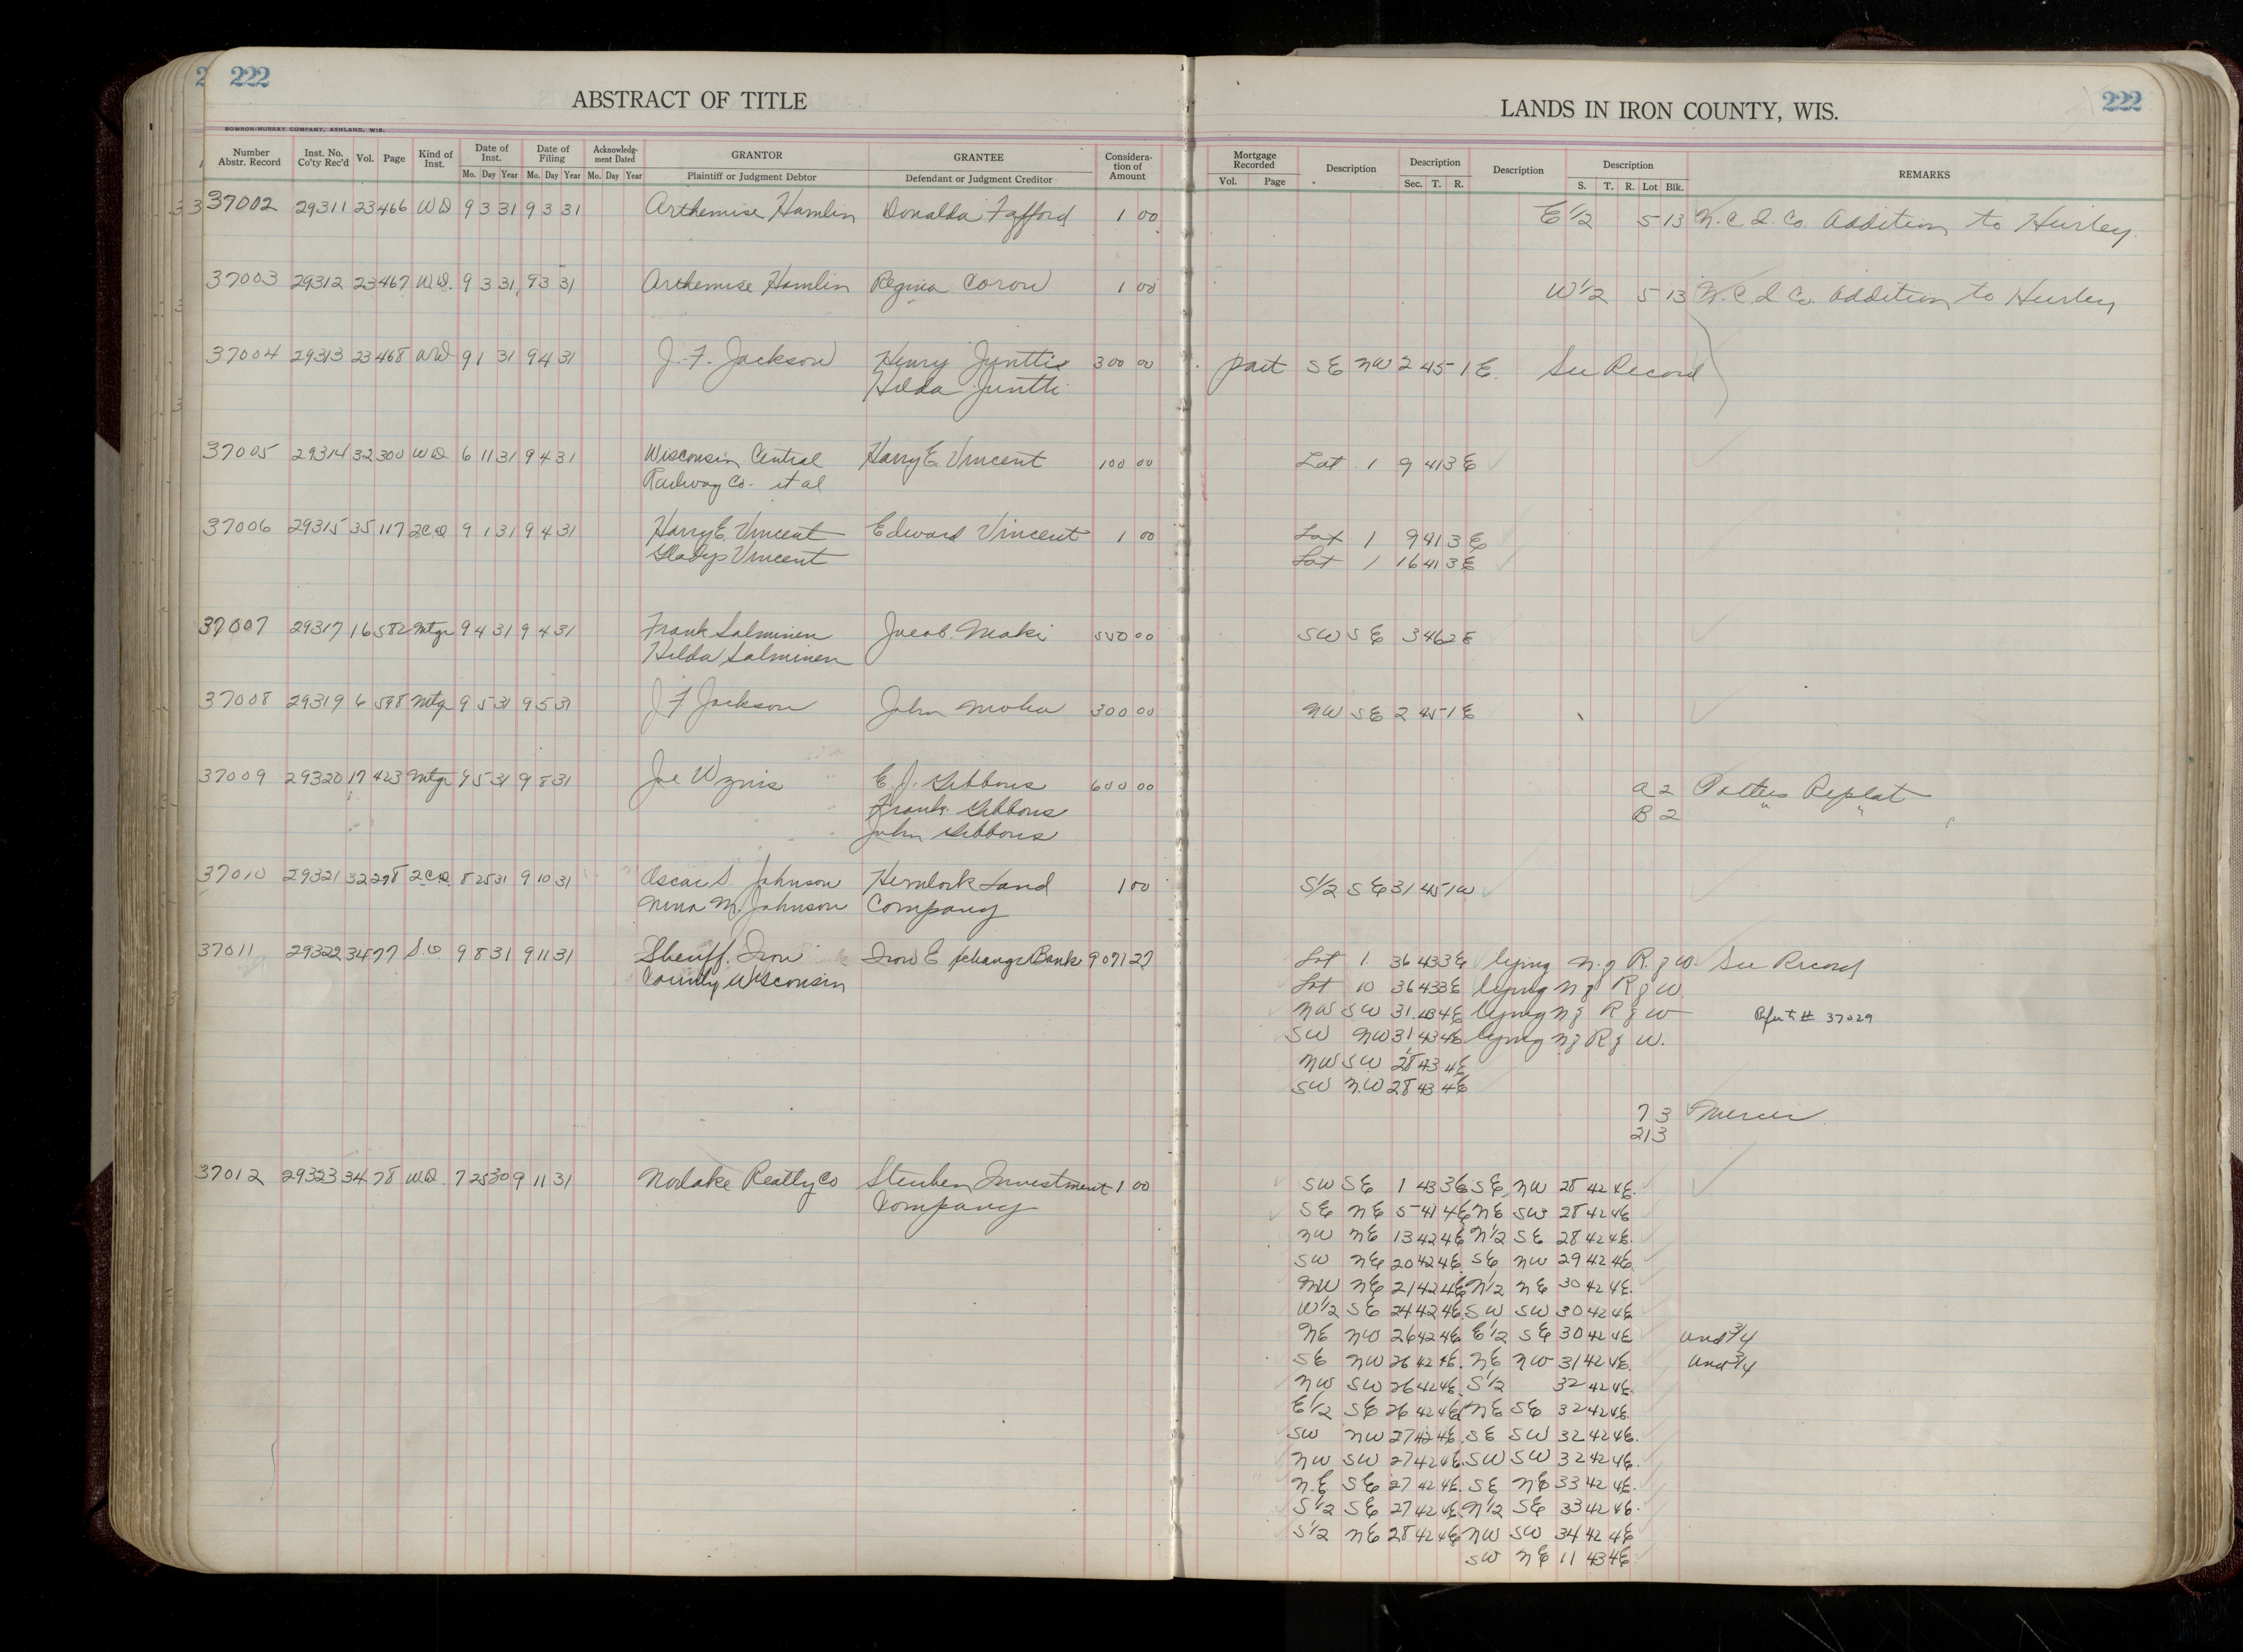 222
ABSTRACT OF TITLE
BOWRON-MURRAY COMPANY, ASHLAND, WIS.
Number Abstr. Record
Inst. No. Co'ty Rec'd
Vol.
Page
Kind of Inst.
Date of Inst.
Mo. Day Year
Date of Filing
Mo. Day Year
Acknowledgment Dated
Mo. Day Year
GRANTOR
Plaintiff or Judgment Debtor
GRANTEE
Defendant or Judgment Creditor
Consideration of Amount
37002 29311 23 466 WD 9 3 31 9 3 31 Arthemise Hamlin Donalda Fafford 1 00
37003 29312 23 467 W.D. 9 3 31 9 3 31 Arthemise Hamlin Regina Corow 1 00
37004 29313 23 468 WD 9 1 31 9 4 31 J. F. Jackson Henry Jyntti 300 00
Hilda Juntti
37005 29314 32 300 WD 6 11 31 9 4 31 Wisconsin Central Harry E. Vincent 100 00
Railway Co. et al
37006 29315 35 117 2CD 9 1 31 9 4 31 Harry E. Vincent Edward Vincent 1 00
Gladys Vincent
37007 29317 16 582 Mtge 9 4 31 9 4 31 Frank Salminen Jacob Maki 550 00
Hilda Salminen
37008 29319 6 598 Mtg 9 5 31 9 5 31 J F Jackson John 300 00
37009 29320 17 423 Mtge 9 5 31 9 8 31 Joe E. J. Gibbons 600 00
Frank Gibbons
John Gibbons
37010 29321 32 298 2CD 8 25 31 9 10 31 Oscar S. Johnson Hemlock Land 1 00
Nina M. Johnson Company
37011 29322 34 77 S.D 9 8 31 9 11 31 Sheriff Iron Iron Exchange Bank 9071 27
County Wisconsin
37012 29323 34 78 WD. 7 25 30 9 11 31 Norlake Realty Co Steuben Investment 1 00
Company
222
LANDS IN IRON COUNTY, WIS.
Mortgage Recorded
Vol. Page
Description
Description
Sec. T. R.
Description
Description
S. T. R. Lot Blk.
REMARKS
E 1/2 5 13 N.C.I. Co. Addition to Hurley.
W 1/2 5 13 N.C.I. Co. Addition to Hurley
part SE NW 2 45 1 E. See Record
Lot 1 9 41 3 E
Lot 1 9 41 3 E
Lot 1 16 41 3 E
SW SE 3 46 2 E
NW SE 2 45 1 E
A 2 Potters Replat
B 2 " "
S 1/2 SE 31 45 1 W
Lot 1 36 43 3 E lying N. of R. of W. See Record
Lot 10 36 43 3 E lying N of R of W.
NW SW 31 43 4 E lying N of R of W
Refer to # 37029
SW NW 31 43 4 E lying N of R of W.
NW SW 28 43 4 E
SW NW 28 43 4 E
7 3 Mercer
21 3
SW SE 1 43 3 E SE NW 28 42 4 E.
SE NE 5 41 4 E NE SW 28 42 4 E
NW NE 13 42 4 E N 1/2 SE 28 42 4 E.
SW NE 20 42 4 E. SE NW 29 42 4 E.
NW NE 21 42 4 E N 1/2 NE 30 42 4 E.
W 1/2 SE 24 42 4 E. SW SW 30 42 4 E
NE NW 26 42 4 E E 1/2 SE 30 42 4 E und 3/4
SE NW 26 42 4 E. NE NW 31 42 4 E. und 3/4
NW SW 26 42 4 E. S 1/2 32 42 4 E.
E 1/2 SE 26 42 4 E NE SE 32 42 4 E.
SW NW 27 42 4 E. SE SW 32 42 4 E.
NW SW 27 42 4 E. SW SW 32 42 4 E.
N.E SE 27 42 4 E. SE NE 33 42 4 E.
S 1/2 SE 27 42 4 E. N 1/2 SE 33 42 4 E.
S 1/2 NE 28 42 4 E NW SW 34 42 4 E
SW NE 11 43 4 E